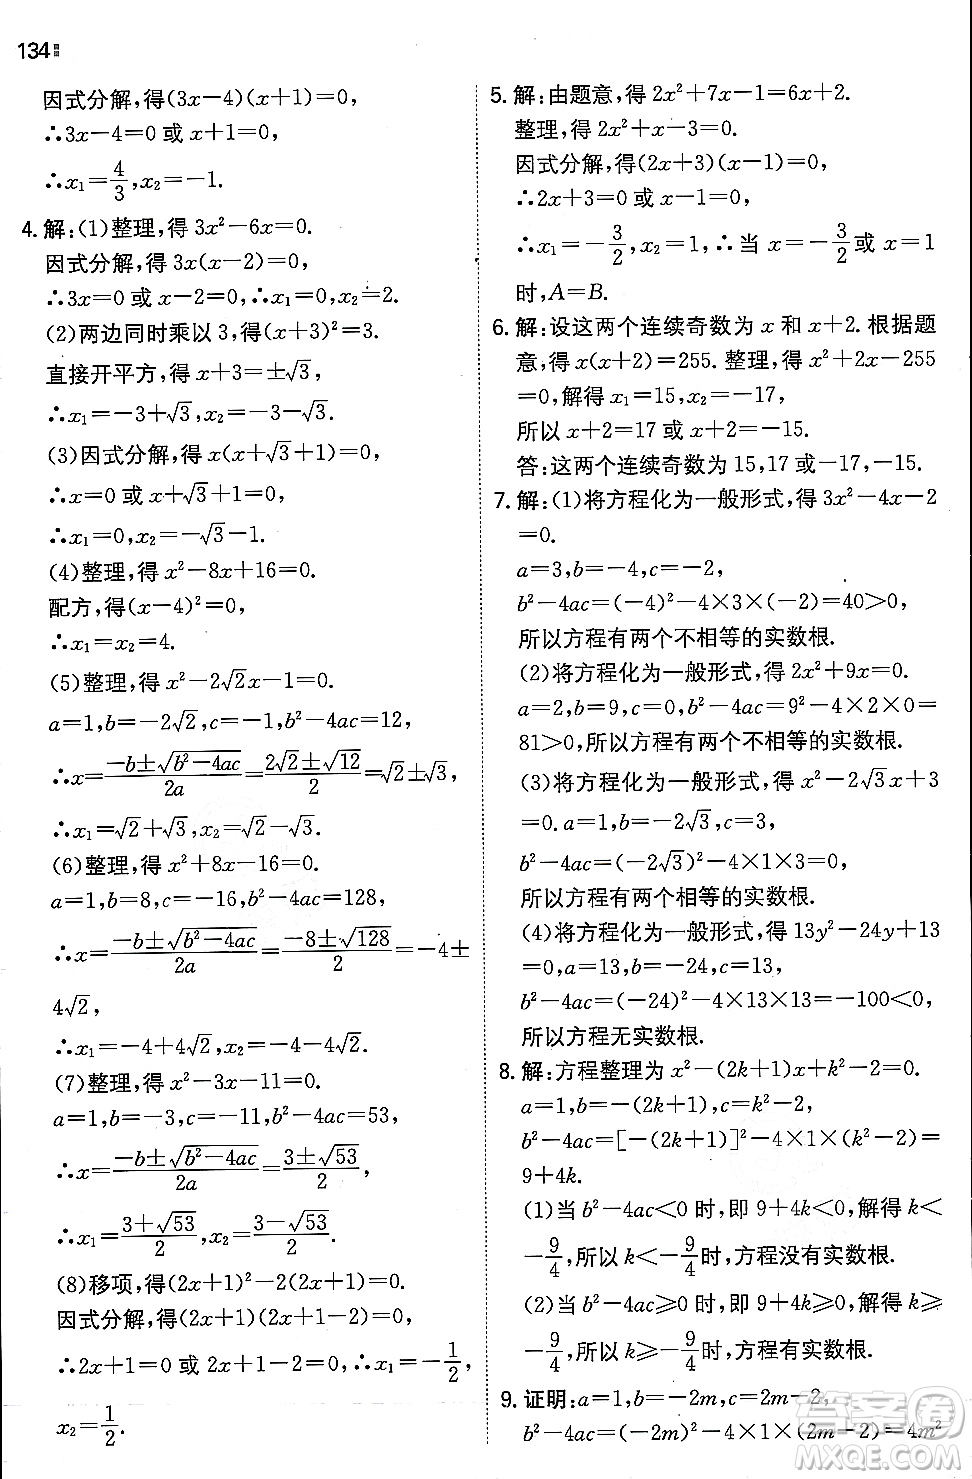 134
因式分解,得(3x-4)(x+1)=0,
∴3x-4=0 或 x+1=0,
∴x₁=4/3,x₂=-1.
4.解:(1)整理,得 3x²-6x=0.
因式分解,得 3x(x-2)=0,
∴3x=0 或 x-2=0,∴x₁=0,x₂=2.
(2)两边同时乘以 3,得(x+3)²=3.
直接开平方,得 x+3=±√3,
∴x₁=-3+√3,x₂=-3-√3.
(3)因式分解,得 x(x+√3+1)=0,
∴x=0 或 x+√3+1=0,
∴x₁=0,x₂=-√3-1.
(4)整理,得 x²-8x+16=0.
配方,得(x-4)²=0,
∴x₁=x₂=4.
(5)整理,得 x²-2√2x-1=0.
a=1,b=-2√2,c=-1,b²-4ac=12,
∴x=(-b±√(b²-4ac))/(2a)=(2√2±√12)/2=√2±√3,
∴x₁=√2+√3,x₂=√2-√3.
(6)整理,得 x²+8x-16=0.
a=1,b=8,c=-16,b²-4ac=128,
∴x=(-b±√(b²-4ac))/(2a)=(-8±√128)/2=-4±
4√2,
∴x₁=-4+4√2,x₂=-4-4√2.
(7)整理,得 x²-3x-11=0.
a=1,b=-3,c=-11,b²-4ac=53,
∴x=(-b±√(b²-4ac))/(2a)=(3±√53)/2,
∴x₁=(3+√53)/2,x₂=(3-√53)/2.
(8)移项,得(2x+1)²-2(2x+1)=0.
因式分解,得(2x+1)(2x+1-2)=0,
∴2x+1=0 或 2x+1-2=0,∴x₁=-1/2,
x₂=1/2.
5.解:由题意,得 2x²+7x-1=6x+2.
整理,得 2x²+x-3=0.
因式分解,得(2x+3)(x-1)=0,
∴2x+3=0 或 x-1=0,
∴x₁=-3/2,x₂=1,∴当 x=-3/2或 x=1
时,A=B.
6.解:设这两个连续奇数为 x 和 x+2.根据题
意,得 x(x+2)=255.整理,得 x²+2x-255
=0,解得 x₁=15,x₂=-17,
所以 x+2=17 或 x+2=-15.
答:这两个连续奇数为 15,17 或-17,-15.
7.解:(1)将方程化为一般形式,得 3x²-4x-2
=0.
a=3,b=-4,c=-2,
b²-4ac=(-4)²-4×3×(-2)=40>0,
所以方程有两个不相等的实数根.
(2)将方程化为一般形式,得 2x²+9x=0.
a=2,b=9,c=0,b²-4ac=9²-4×2×0=
81>0,所以方程有两个不相等的实数根.
(3)将方程化为一般形式,得 x²-2√3x+3
=0.a=1,b=-2√3,c=3,
b²-4ac=(-2√3)²-4×1×3=0,
所以方程有两个相等的实数根.
(4)将方程化为一般形式,得 13y²-24y+13
=0,a=13,b=-24,c=13,
b²-4ac=(-24)²-4×13×13=-100<0,
所以方程无实数根.
8.解:方程整理为 x²-(2k+1)x+k²-2=0.
a=1,b=-(2k+1),c=k²-2,
b²-4ac=[-(2k+1)]²-4×1×(k²-2)=
9+4k.
(1)当 b²-4ac<0 时,即 9+4k<0,解得 k<
-9/4,所以 k<-9/4时,方程没有实数根.
(2)当 b²-4ac≥0 时,即 9+4k≥0,解得 k≥
-9/4,所以 k≥-9/4时,方程有实数根.
9.证明:a=1,b=-2m,c=2m-2,
b²-4ac=(-2m)²-4×1×(2m-2)=4m²